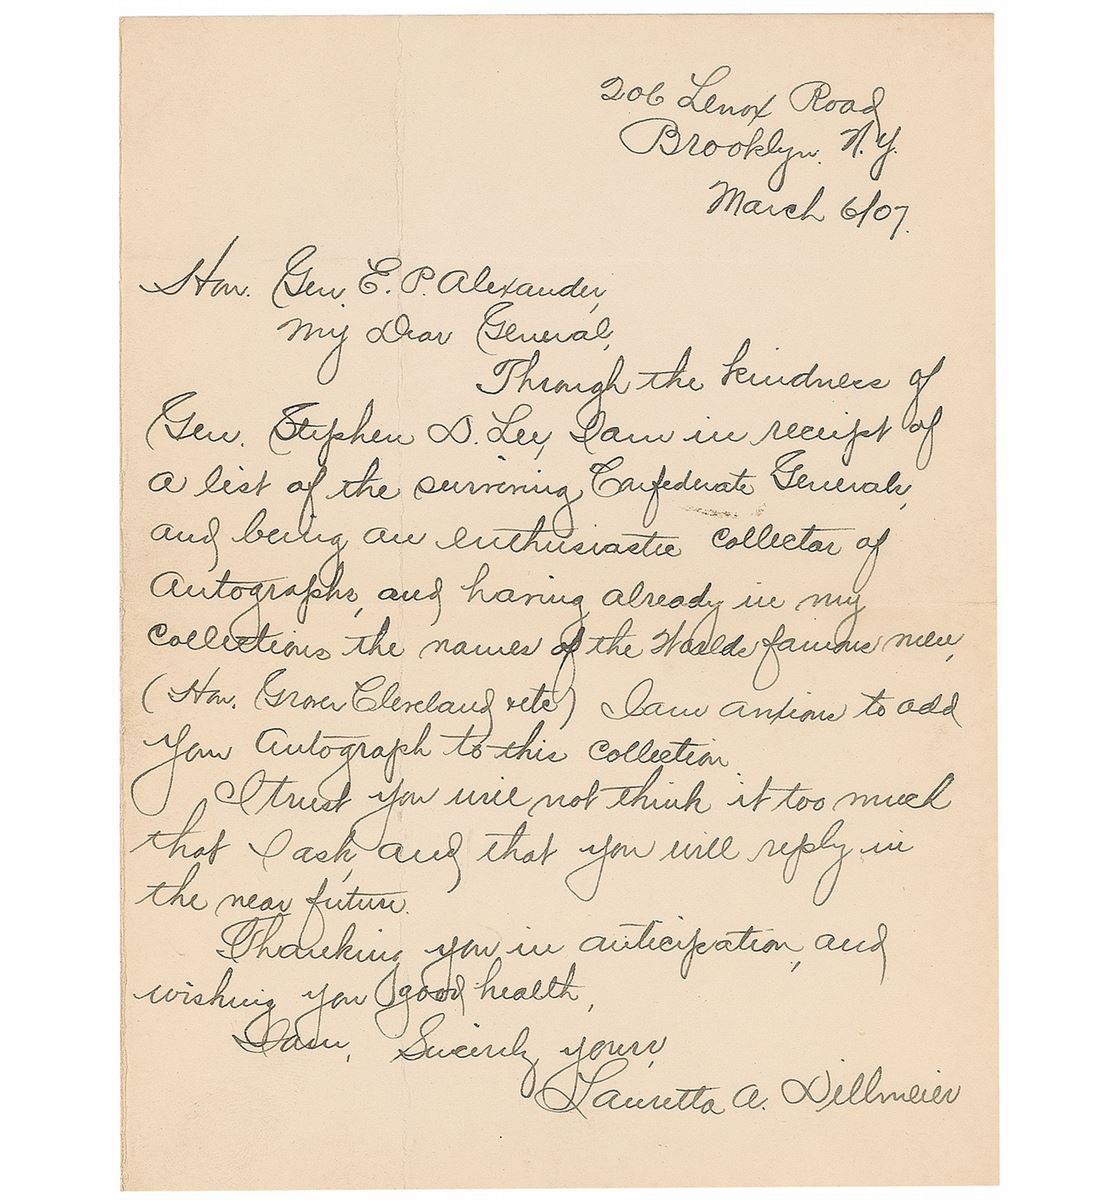 206 Lenox Road
Brooklyn. N.Y.
March 6/07.
Hon. Gen. E. P. Alexander,
My Dear General,
Through the kindness of
Gen. Stephen D. Lee, I am in receipt of
a list of the surviving Confederate Generals,
and being an enthusiastic collector of
Autographs, and having already in my
collections the names of the Worlds famous men,
(Hon. Grover Cleveland etc) I am anxious to add
your Autograph to this collection.
I trust you will not think it too much
that I ask, and that you will reply in
the near future.
Thanking you in anticipation, and
wishing you good health,
I am, Sincerely yours,
Lauretta A. Dillmeier